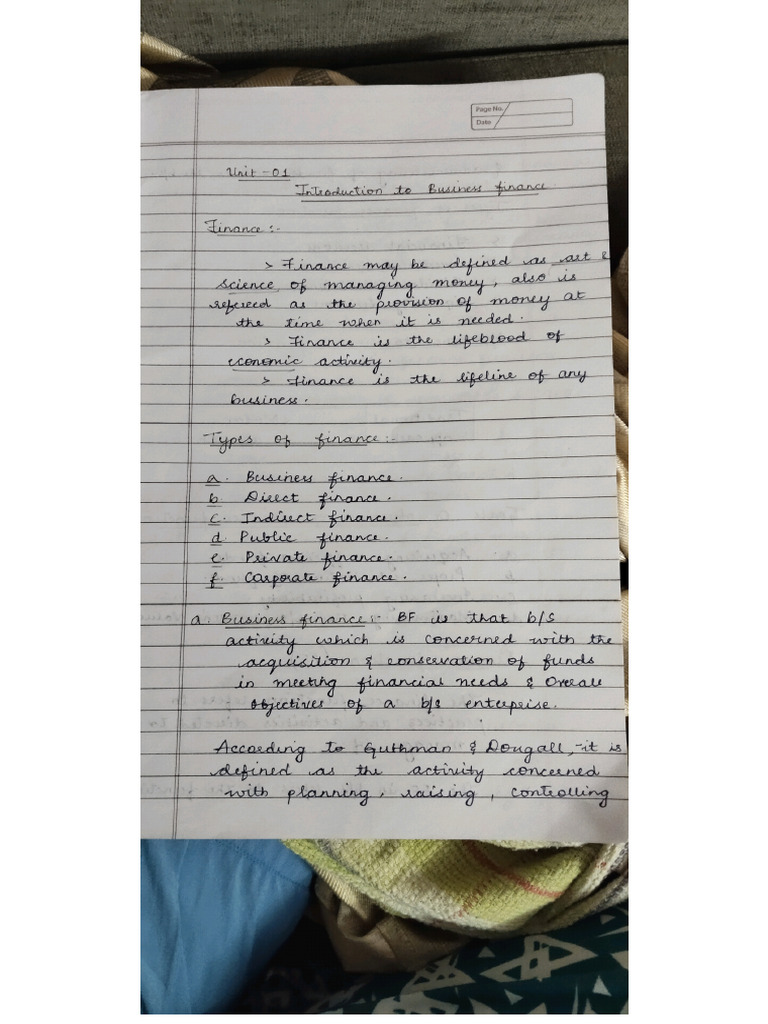 Page No.
Date
Unit - 01
Introduction to Business finance
Finance :-
> Finance may be defined as art &
science of managing money, also is
refereed as the provision of money at
the time when it is needed.
> Finance is the lifeblood of
economic activity.
> Finance is the lifeline of any
business.
Types of finance :-
a. Business finance.
b. Direct finance.
c. Indirect finance.
d. Public finance.
e. Private finance.
f. Corporate finance.
a. Business finance :- BF is that b/s
activity which is concerned with the
acquisition & conservation of funds
in meeting financial needs & overall
objectives of a b/s enterprise.
According to Guthman & Dougall, -it is
defined as the activity concerned
with planning, raising, controlling